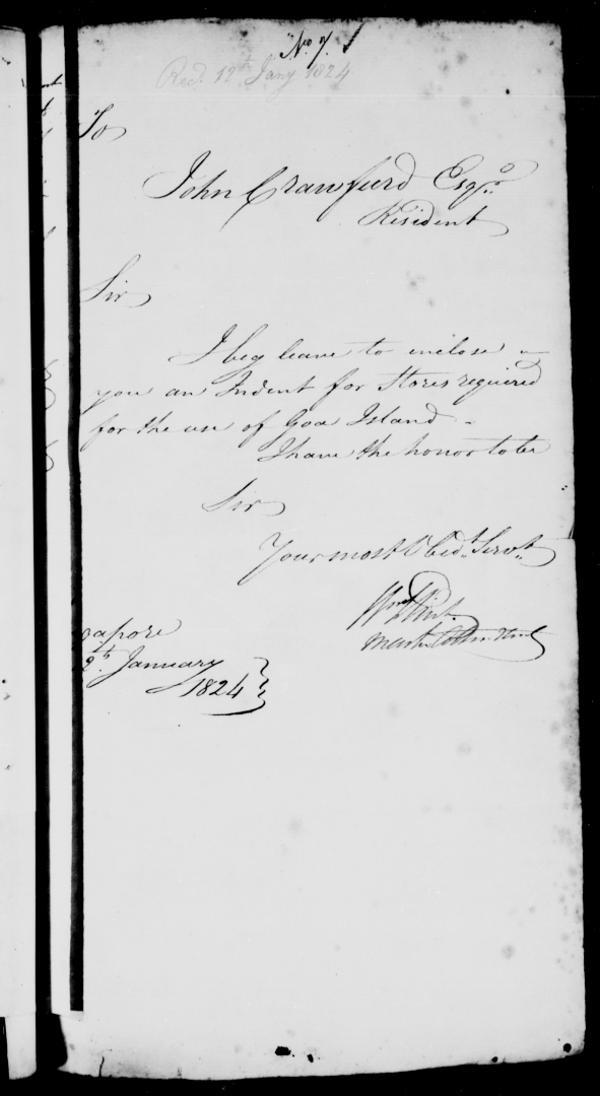 No. 7.
Recd. 12th Jany 1824
To
John Crawfurd Esqr.
Resident
Sir
I beg leave to inclose
you an Indent for Stores required
for the use of Goa Island
I have the honor to be
Sir
Your most Obedt. Servt.
Wm. Flint
Master
apore
2th. January
1824